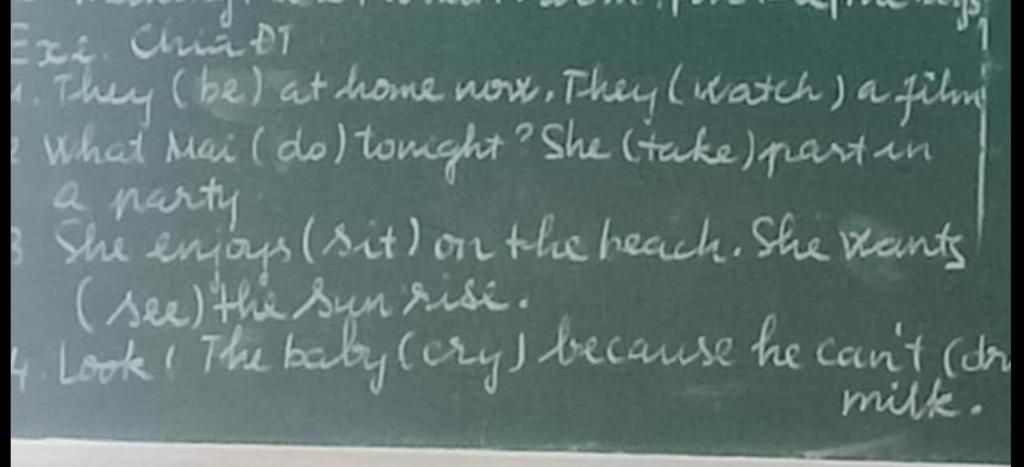 Ex1. Chia ĐT
1. They (be) at home now. They (watch) a film
2 What Mai (do) tonight? She (take) part in
a party
3 She enjoys (sit) on the beach. She wants
(see) the sun rise.
4. Look! The baby (cry) because he can't (dr
milk.